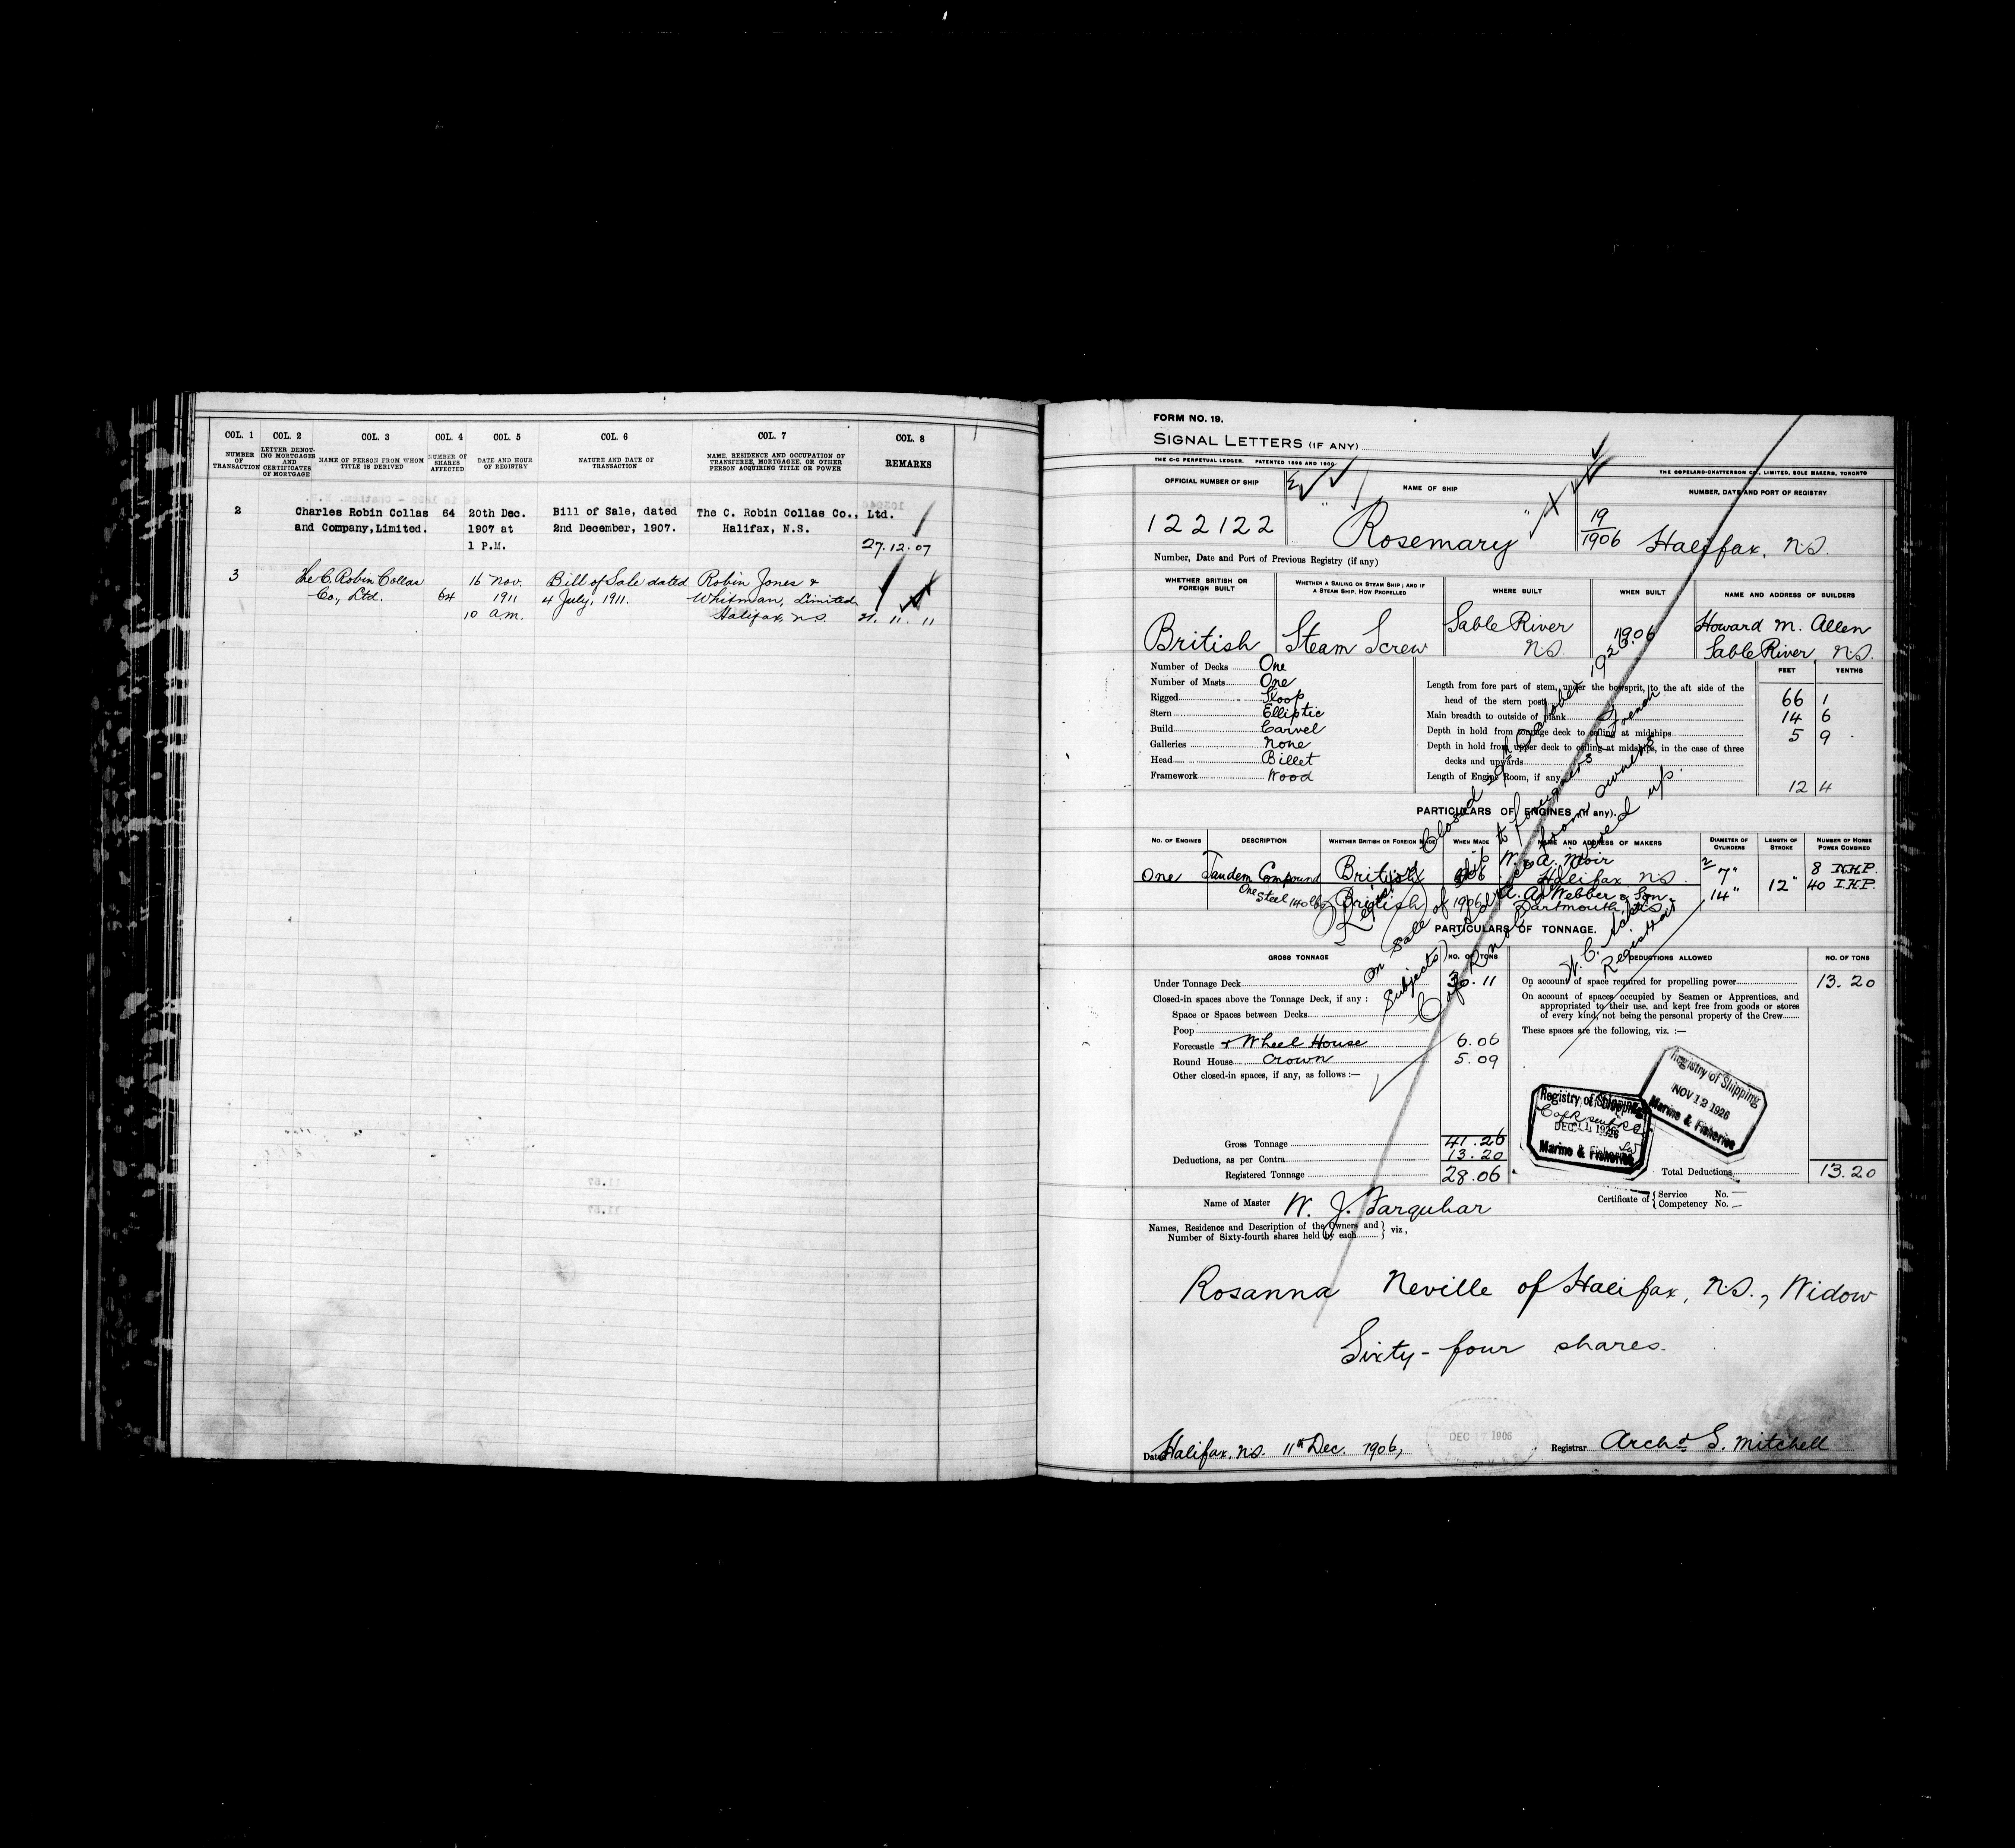 COL. 1 COL. 2 COL. 3 COL. 4 COL. 5 COL. 6 COL. 7 COL. 8
NUMBER OF TRANSACTION
LETTER DENOTING MORTGAGES AND CERTIFICATES OF MORTGAGE
NAME OF PERSON FROM WHOM TITLE IS DERIVED
NUMBER OF SHARES AFFECTED
DATE AND HOUR OF REGISTRY
NATURE AND DATE OF TRANSACTION
NAME, RESIDENCE AND OCCUPATION OF TRANSFEREE, MORTGAGEE, OR OTHER PERSON ACQUIRING TITLE OR POWER
REMARKS
2 Charles Robin Collas 64 20th Dec. Bill of Sale, dated The C. Robin Collas Co., Ltd.
and Company, Limited. 1907 at 2nd December, 1907. Halifax, N.S.
1 P.M. 27.12.07
3 The C. Robin Collas 16 Nov. Bill of Sale dated Robin Jones &
Co, Ltd. 64 1911 4 July, 1911. Whitman, Limited
10 a.m. Halifax, N.S. 21. 11. 11
FORM NO. 19.
SIGNAL LETTERS (IF ANY)
THE C-C PERPETUAL LEDGER. PATENTED 1898 AND 1900 THE COPELAND-CHATTERSON CO., LIMITED, SOLE MAKERS, TORONTO
OFFICIAL NUMBER OF SHIP NAME OF SHIP NUMBER, DATE AND PORT OF REGISTRY
122122 "Rosemary" 19/1906 Halifax, N.S.
Number, Date and Port of Previous Registry (if any)
WHETHER BRITISH OR FOREIGN BUILT
WHETHER A SAILING OR STEAM SHIP; AND IF A STEAM SHIP, HOW PROPELLED
WHERE BUILT WHEN BUILT NAME AND ADDRESS OF BUILDERS
British Steam Screw Sable River N.S. 1906 Howard M. Allen
Sable River, N.S.
FEET TENTHS
Number of Decks One
Number of Masts One
Rigged Sloop
Stern Elliptic
Build Carvel
Galleries None
Head Billet
Framework Wood
Length from fore part of stem, under the bowsprit, to the aft side of the
head of the stern post 66 1
Main breadth to outside of plank 14 6
Depth in hold from tonnage deck to ceiling at midships 5 9
Depth in hold from upper deck to ceiling at midships, in the case of three
decks and upwards
Length of Engine Room, if any 12 4
PARTICULARS OF ENGINES (if any).
NO. OF ENGINES DESCRIPTION WHETHER BRITISH OR FOREIGN MADE WHEN MADE NAME AND ADDRESS OF MAKERS DIAMETER OF CYLINDERS LENGTH OF STROKE NUMBER OF HORSE POWER COMBINED
One Tandem Compound British 1906 W. & A. Moir
Halifax N.S. 2 7" 12" 8 N.H.P.
40 I.H.P.
One Steel 140 lbs British 1906 Webber & Son
Dartmouth, N.S. 14"
Closed October 1926.
on sale of ship to foreigners (French
Subjects) Advice from owners
Cof R not delivered up.
Registrar
PARTICULARS OF TONNAGE.
GROSS TONNAGE NO. OF TONS DEDUCTIONS ALLOWED NO. OF TONS
Under Tonnage Deck 30.11
Closed-in spaces above the Tonnage Deck, if any :
Space or Spaces between Decks
Poop
Forecastle + Wheel House 6.06
Round House Crown 5.09
Other closed-in spaces, if any, as follows :—
Gross Tonnage 41.26
Deductions, as per Contra 13.20
Registered Tonnage 28.06
On account of space required for propelling power 13.20
On account of spaces occupied by Seamen or Apprentices, and
appropriated to their use, and kept free from goods or stores
of every kind, not being the personal property of the Crew
These spaces are the following, viz. :—
Registry of Shipping
NOV 12 1926
Marine & Fisheries
Registry of Shipping
DEC 1926
Marine & Fisheries
Total Deductions 13.20
Name of Master W. J. Farquhar
Certificate of { Service No. —
Competency No. —
Names, Residence and Description of the Owners and
Number of Sixty-fourth shares held by each } viz.,
Rosanna Neville of Halifax, N.S., Widow
Sixty-four shares.
DEC 17 1906
Date Halifax, N.S. 11th Dec. 1906, Registrar Archd. S. Mitchell